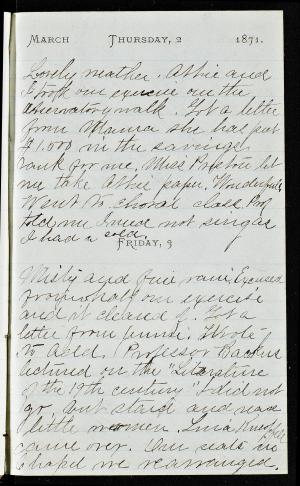 MARCH THURSDAY, 2 1871.
Lovely weather. Abbie and
I took our exercise on the
observatory walk. Got a letter
from Mama she has put
$1,000 in the savings
bank for me. Miss Preston let
me take Abbie paper. Wonderful
Went to choral class Prof
told me I need not sing as
I had a cold.
FRIDAY, 3
Misty and fine rain. Excused
from hall our exercise
and it cleared off. Got a
letter from Wrote
to Professor
lectured on the "Literature
of the 19th century" I did not
go, but staid and read
little women. Lina
came over. Our seats in
chapel we rearranged.